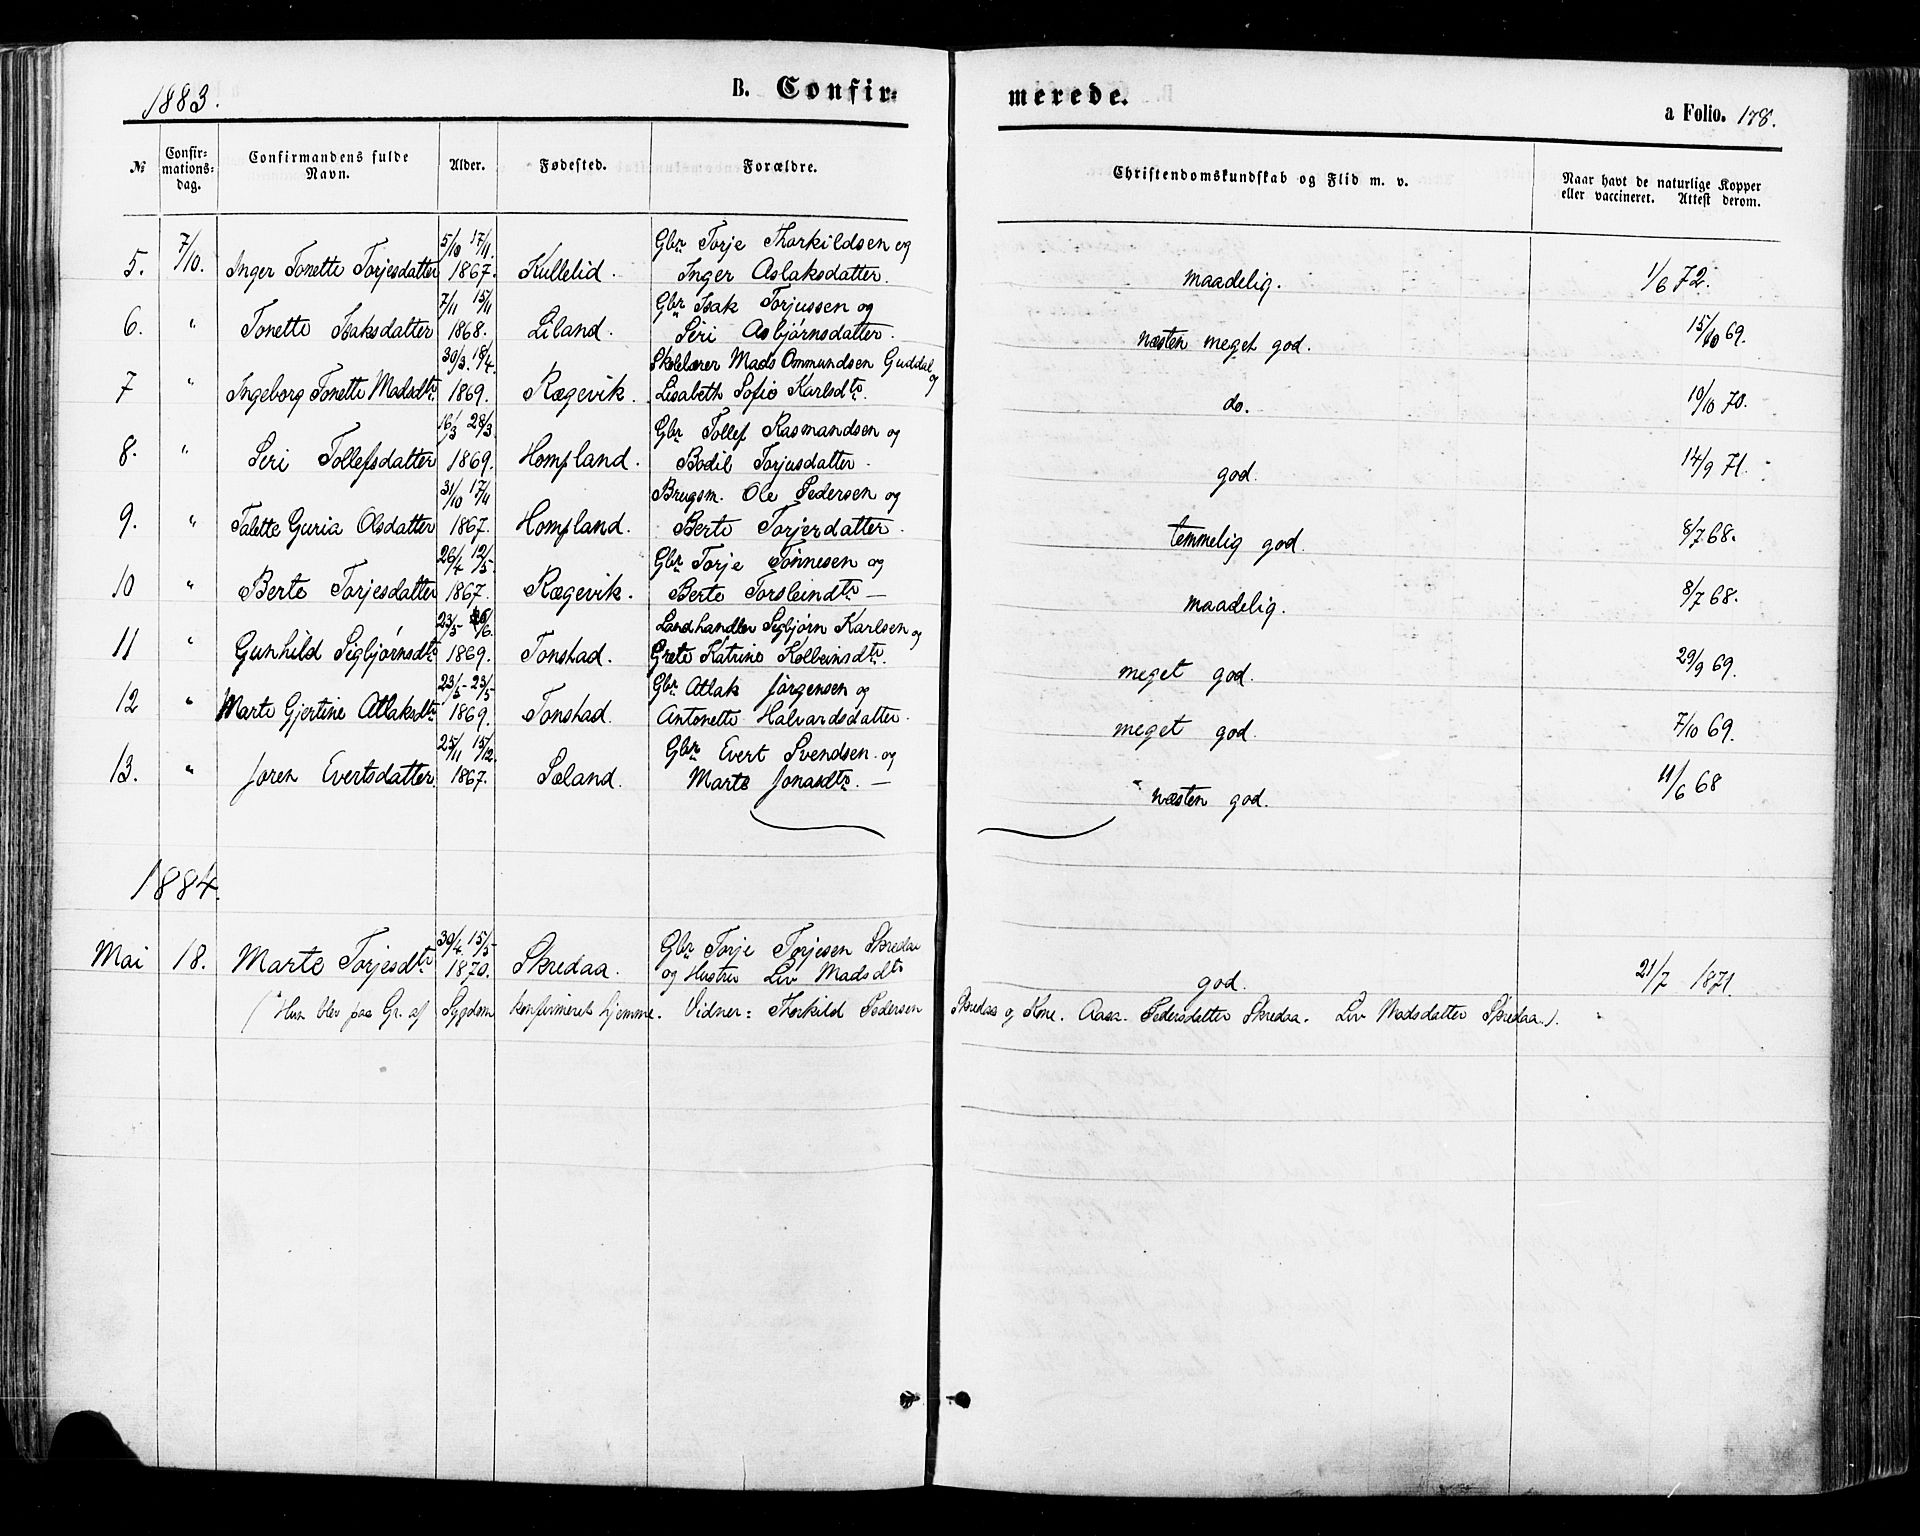 1883.
B. Confir-
merede.
a Folio. 178.
№
Confir-
mations-
dag.
Confirmandens fulde
Navn.
Alder.
Fødested.
Forældre.
Christendomskundskab og Flid m. v.
Naar havt de naturlige Kopper
eller vaccineret. Attest derom.
5/10 17/11. Gbr. Torje Thorkildsen og
5. 7/10. Inger Tonette Torjesdatter 1867. Kullelid. Inger Aslaksdatter. maadelig. 1/6 72.
7/11 15/11 Gbr. Isak Torjussen og
6. " Tonette Isaksdatter 1868. Liland. Seri Asbjørnsdatter. næsten meget god. 15/10 69.
30/3. 18/4. Skolelærer Mads Ommundsen Guddal og
7 " Ingeborg Tonette Madsdtr. 1869. Rægevik. Lisabeth Sofie Karlsdtr. do. 10/10 70.
16/3 28/3. Gbr. Tollef Rasmandsen og
8. " Seri Tollefsdatter 1869. Hompland. Bodil Torjusdatter. god. 14/9 71.
31/10 17/11 Brugsm. Ole Pedersen og
9. " Talette Guria Olsdatter 1867. Hompland. Berte Torjerdatter. temmelig god. 8/7 68.
26/4 12/5. Gbr. Torje Tønnesen og
10 " Berte Torjesdatter 1867. Rægevik. Berte Torsteindtr — maadelig. 8/7 68.
23/5 - /6. Landhandler Segbjørn Karlsen og
11 " Gunhild Segbjørnsdtr. 1869. Tonstad. Grete Katrine Kolbeinsdtr. meget god. 29/9 69.
23/5 - 23/5 Gbr. Atlak Jørgensen og
12 " Marte Gjertine Atlaksdtr. 1869. Tonstad. Antonette Halvardsdatter. meget god. 7/10 69.
25/11 15/12. Gbr. Evert Svendsen og
13. " Joren Evertsdatter. 1867. Sæland. Marte Jonasdtr. — næsten god. 11/6 68
1884.
30/4 15/5 Gbr Torje Torjesen Skredaa
Mai 18. Marte Torjesdtr 1870. Skredaa. og Hustru Liv Madsdtr god. 21/7 1871.
(* Hun blev paa Gr. af Sygdom konfirmeret hjemme. Vidner: Thorkild Pedersen Skredaa og Kone. Aasa Pedersdatter Skredaa. Liv Madsdatter Skredaa.).